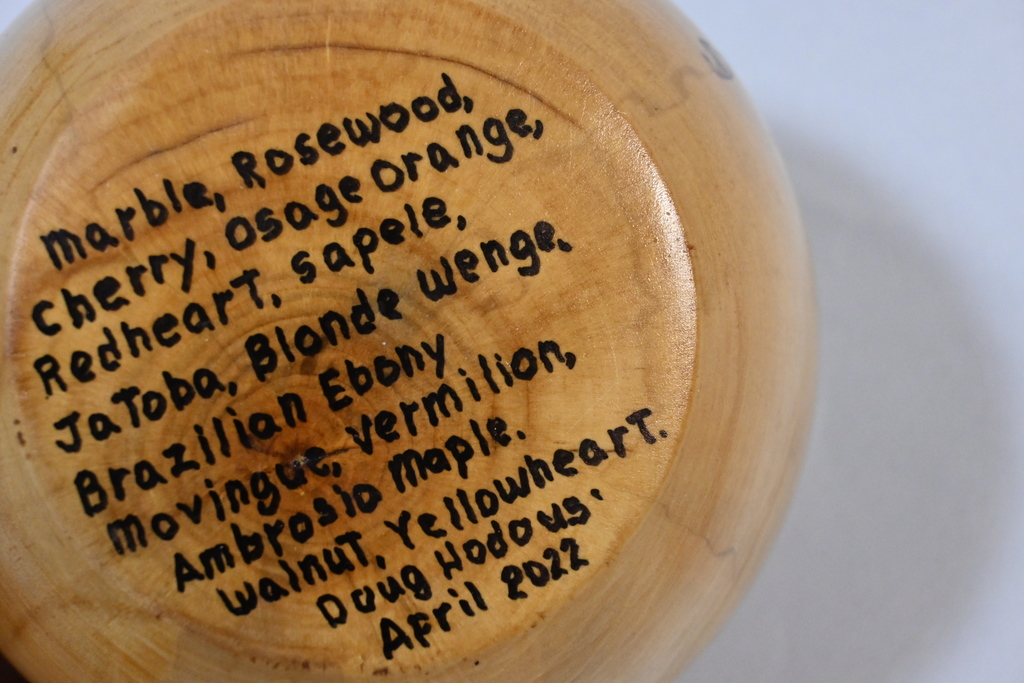 Marble, Rosewood,
Cherry, Osage Orange,
RedhearT, sapele,
JaToba, Blonde wenge.
Brazilian Ebony
Movingue, Vermilion,
Ambrosio Maple.
WalnuT, YellowhearT.
Doug Hodous.
April 2022